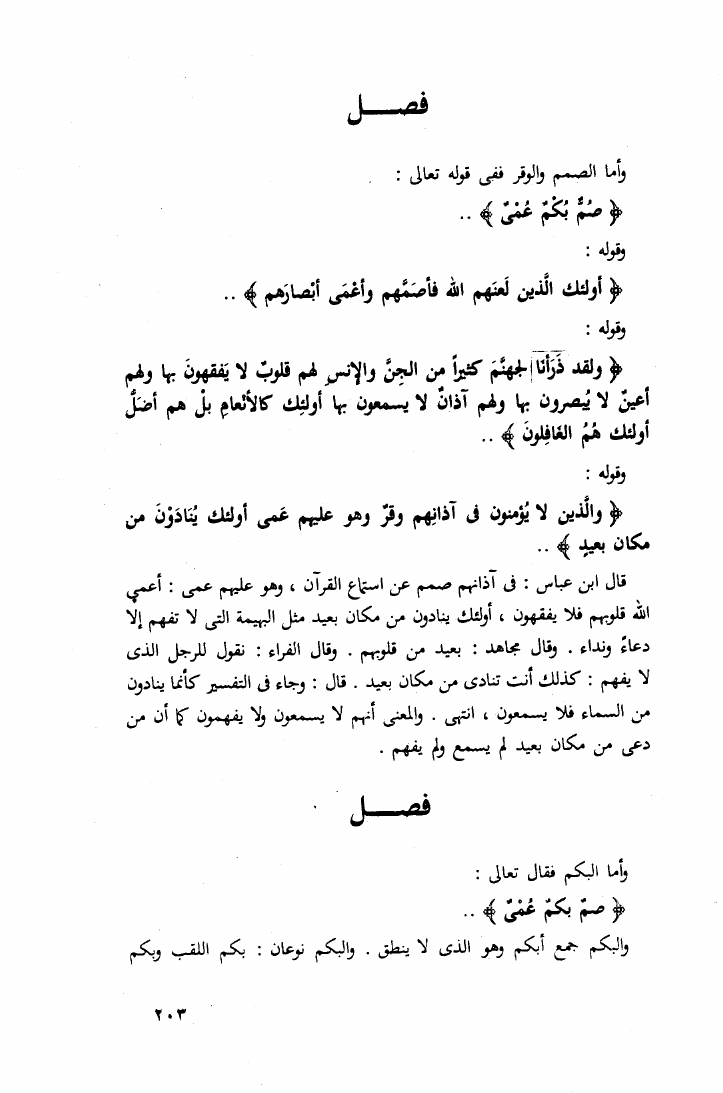 فصــــل
وأما الصمم والوقر ففى قوله تعالى :
﴿ صُمٌّ بُكْمٌ عُمْىٌ ﴾ ..
وقوله :
﴿ أولئك الَّذين لَعنَهم الله فأصَمَّهم وأعْمَى أبْصارَهم ﴾ ..
وقوله :
﴿ ولقد ذَرَأنَا لجهنَّمَ كثيراً من الجِنَّ والإنسِ لهم قلوبٌ لا يَفقهونَ بها ولهم
أعينٌ لا يُبصرون بها ولهم آذانٌ لا يسمعون بها أولئِك كالأنْعامِ بلْ هم أضَلُّ
أولئك هُمُ الغَافِلونَ ﴾ ..
وقوله :
﴿ والَّذين لا يُؤمنون فى آذانِهم وقرٌ وهو عليهم عَمى أولئك يُنَادَوْنَ من
مكان بعيدٍ ﴾ ..
قال ابن عباس : فى آذانهم صمم عن استماع القرآن ، وهو عليهم عمى : أعمي
الله قلوبهم فلا يفقهون ، أولئك ينادون من مكان بعيد مثل البهيمة التى لا تفهم إلا
دعاءً ونداء . وقال مجاهد : بعيد من قلوبهم . وقال الفراء : نقول للرجل الذى
لا يفهم : كذلك أنت تنادى من مكان بعيد . قال : وجاء فى التفسير كأنما ينادون
من السماء فلا يسمعون ، انتهى . والمعنى أنهم لا يسمعون ولا يفهمون كما أن من
دعى من مكان بعيد لم يسمع ولم يفهم .
فصــــل
وأما البكم فقال تعالى :
﴿ صمٌ بكمٌ عُمْىٌ ﴾ ..
والبكم جمع أبكم وهو الذى لا ينطق . والبكم نوعان : بكم اللقب وبكم
٢٠٣